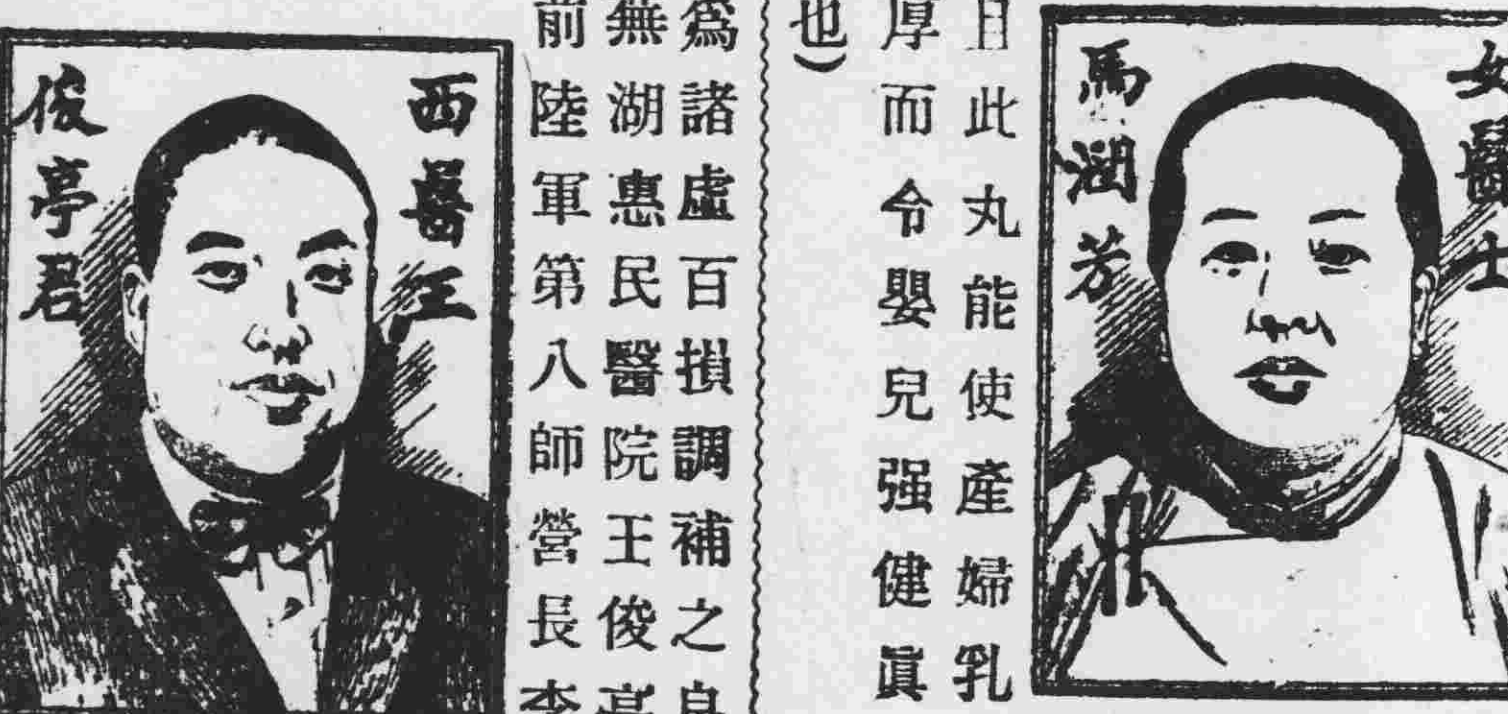 女醫士
馬潤芳
且此丸能使產婦乳
厚而令嬰兒强健眞
也)
爲諸虛百損調補之良
無湖惠民醫院王俊亭
前陸軍第八師營長李
西醫王
俊亭君